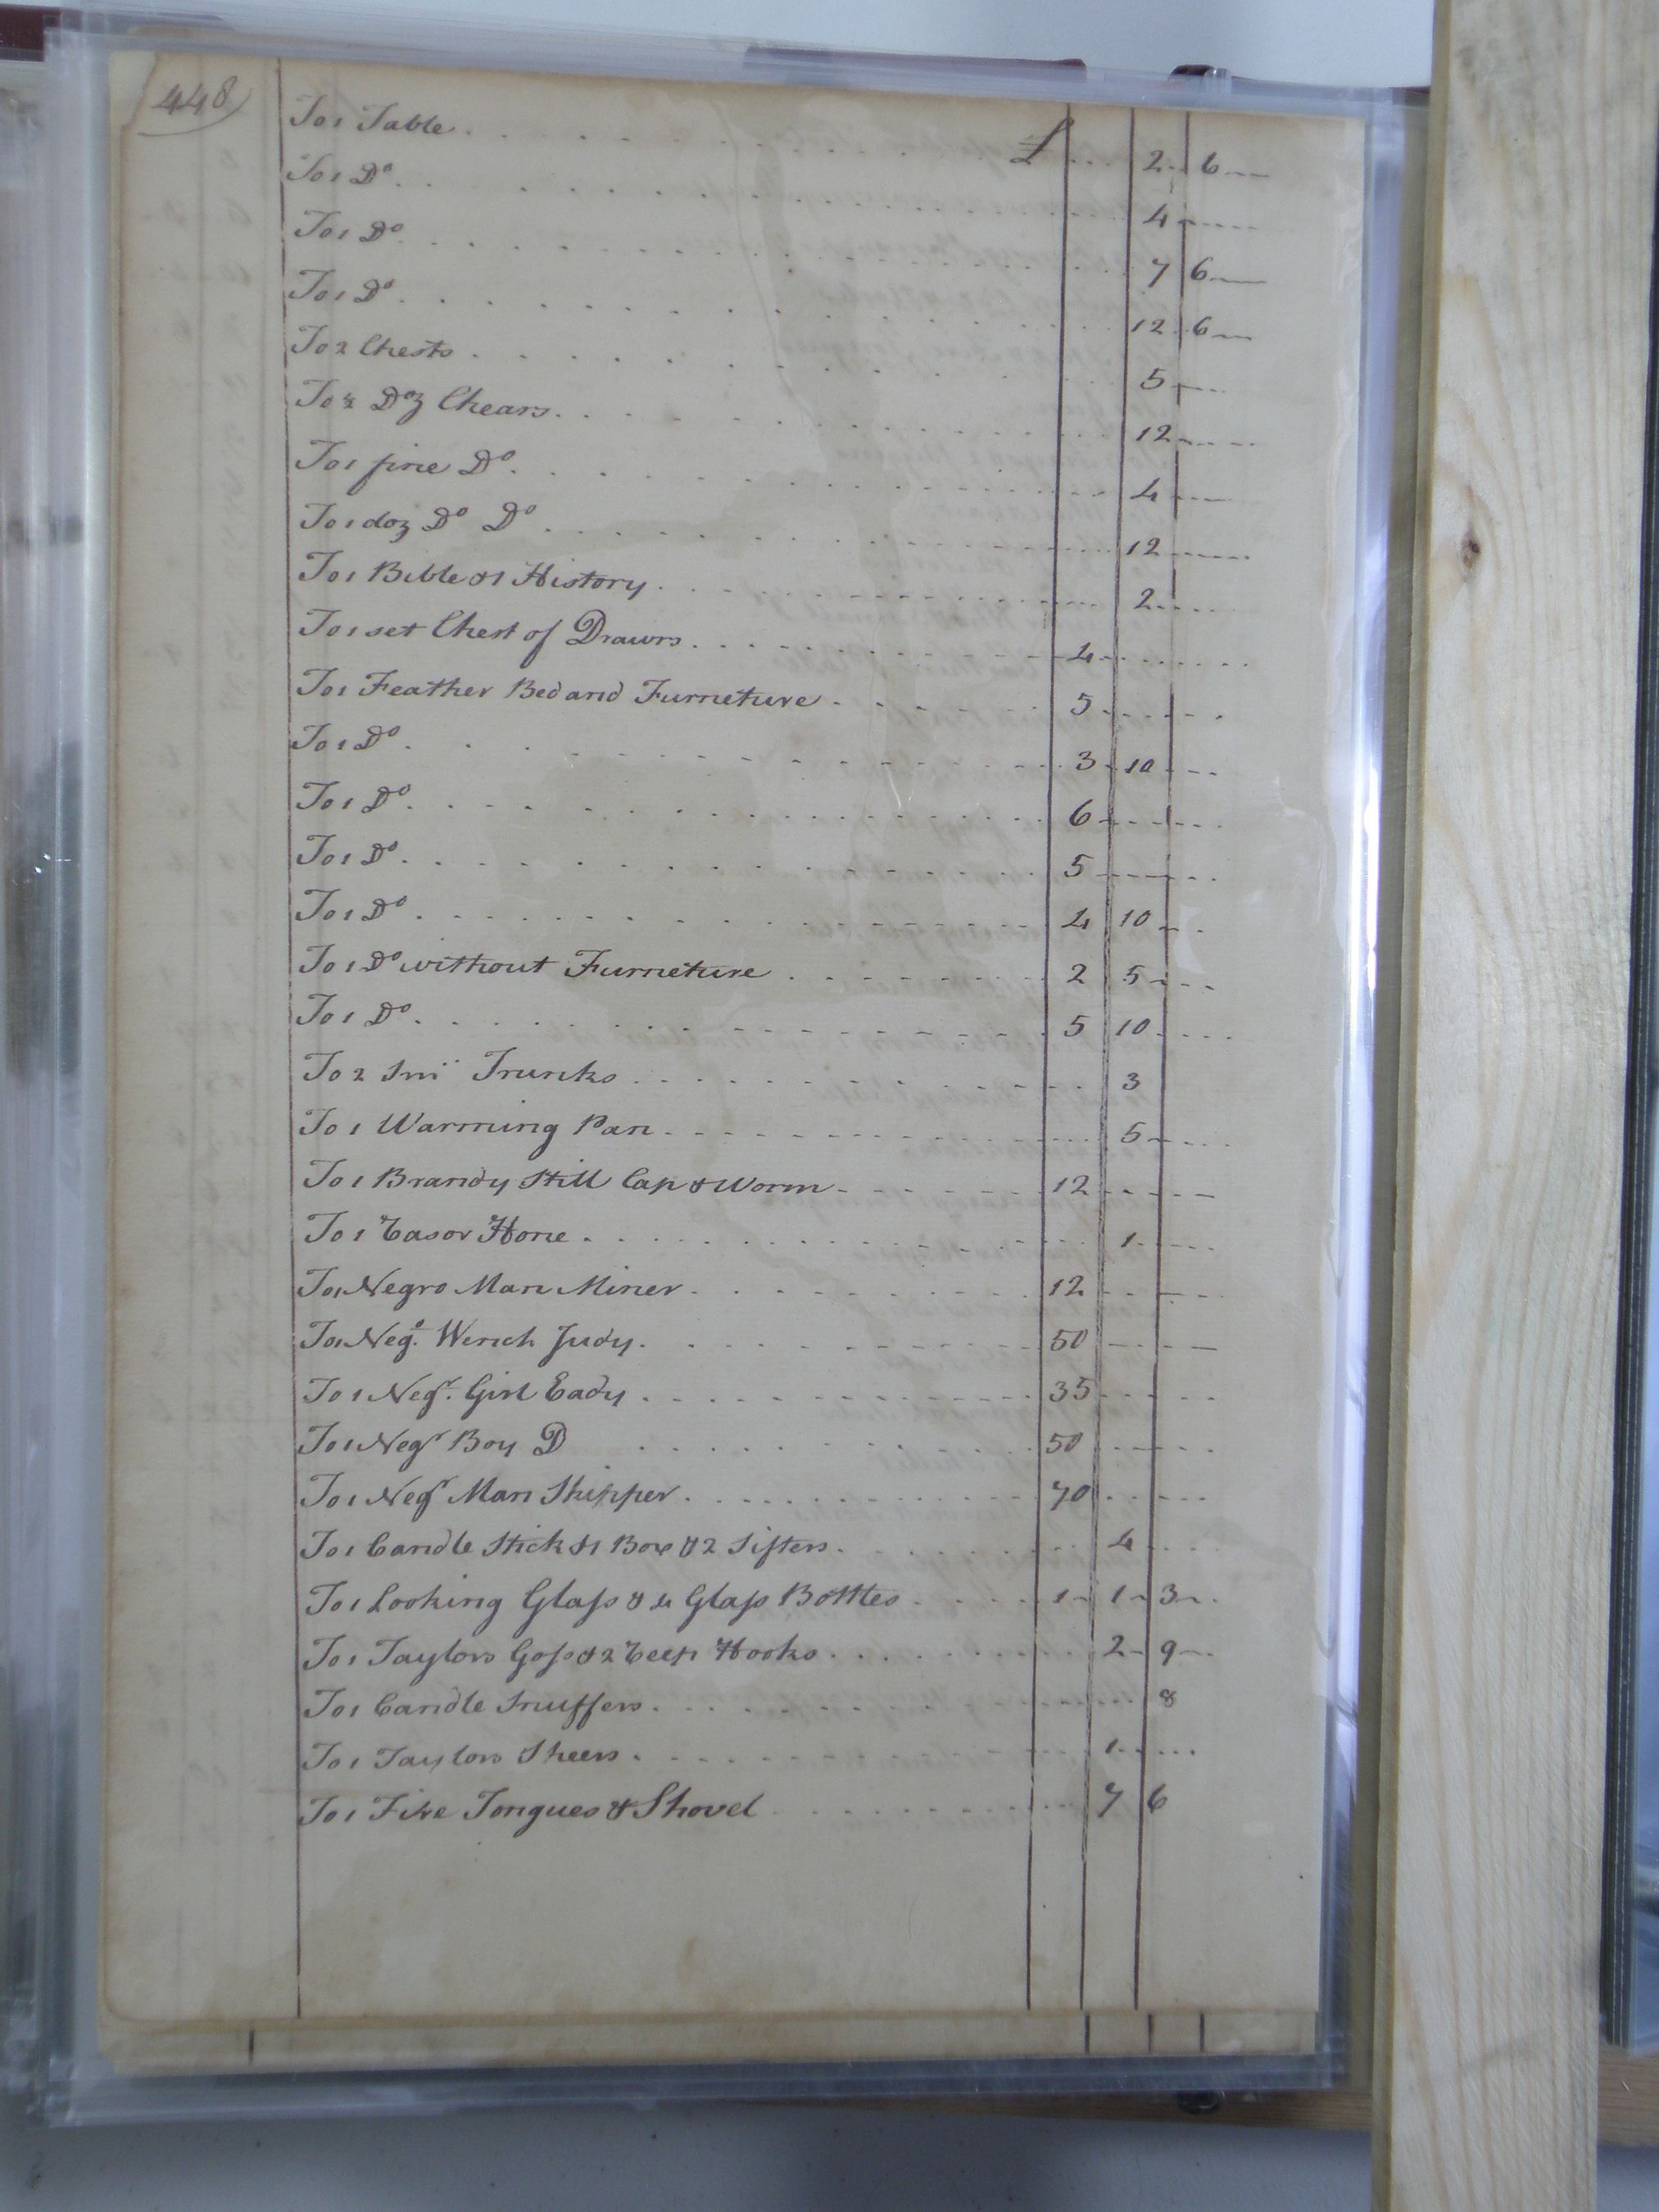 448
To 1 Table . . . £ . . . 2 . 6
To 1 Do . . . 4
To 1 Do . . . 7 6
To 1 Do . . . 12 . 6
To 2 Chests . . . 5
To ½ Doz Chears . . . 12
To 1 fine Do . . . 4
To 1 doz Do Do . . . 12
To 1 Bible & 1 History . . . 2
To 1 set Chest of Drawrs . . . 4
To 1 Feather Bed and Furneture . . . 5
To 1 Do . . . 3 10
To 1 Do . . . 6
To 1 Do . . . 5
To 1 Do . . . 4 10
To 1 Do without Furneture . . . 2 5
To 1 Do . . . 5 10
To 2 Trunks . . . 3
To 1 Warming Pan . . . 5
To 1 Brandy Still Cap & Worm . . . 12
To 1 Rasor Hone . . . 1
To 1 Negro Man Miner . . . 12
To 1 Nego. Wench Judy . . . 50
To 1 Negr. Girl Eady . . . 35
To 1 Negr Boy D . . . 50
To 1 Negr Man Skipper . . . 70
To 1 Candle Stick & 1 Box & 2 Sifters . . . 4
To 1 Looking Glass & 4 Glass Bottles . . . 1 1 3
To 1 Taylors Goss & 2 Reep Hooks . . . 2 9
To 1 Candle Snuffers . . . 8
To 1 Taylors Sheers . . . 1
To 1 Fire Tongues & Shovel . . . 7 6